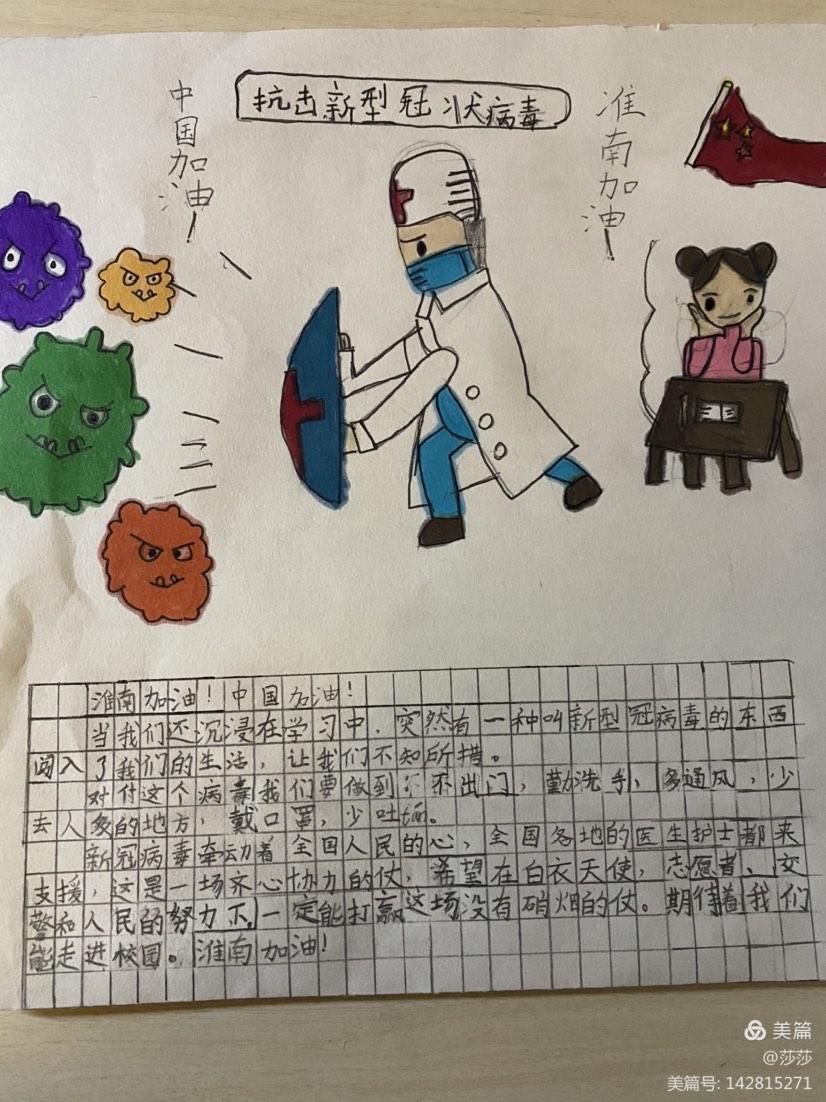 抗击新型冠状病毒
中国加油！
淮南加油！
淮南加油！中国加油！
当我们还沉浸在学习中，突然有一种叫新型冠病毒的东西
闯入了我们的生活，让我们不知所措。
对付这个病毒我们要做到：不出门，勤洗手，多通风，少
去人多的地方，戴口罩，少吐
新冠病毒牵动着全国人民的心，全国各地的医生护士都来
支援，这是一场齐心协力的仗，希望在白衣天使，志愿者、交
警和人民的努力下，一定能打赢这场没有硝烟的仗。期待着我们
能走进校园。淮南加油！
美篇
@莎莎
美篇号: 142815271